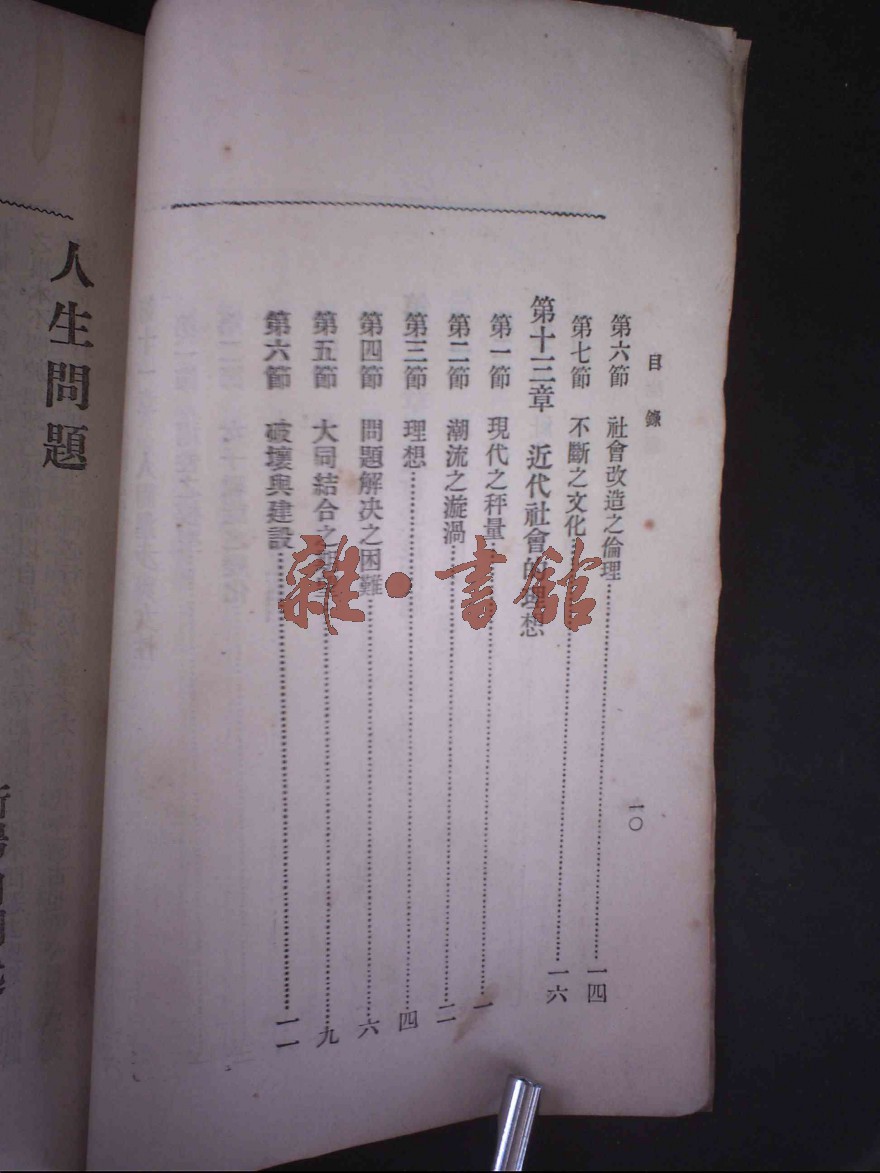 目錄
第六節 社會改造之倫理 一四
第七節 不斷之文化 一六
第十三章 近代社會的理想
第一節 現代之秤量 一
第二節 潮流之漩渦 二
第三節 理想 四
第四節 問題解决之困難 六
第五節 大同結合之 九
第六節 破壞與建設 一一
一〇
人生問題
雜·書館